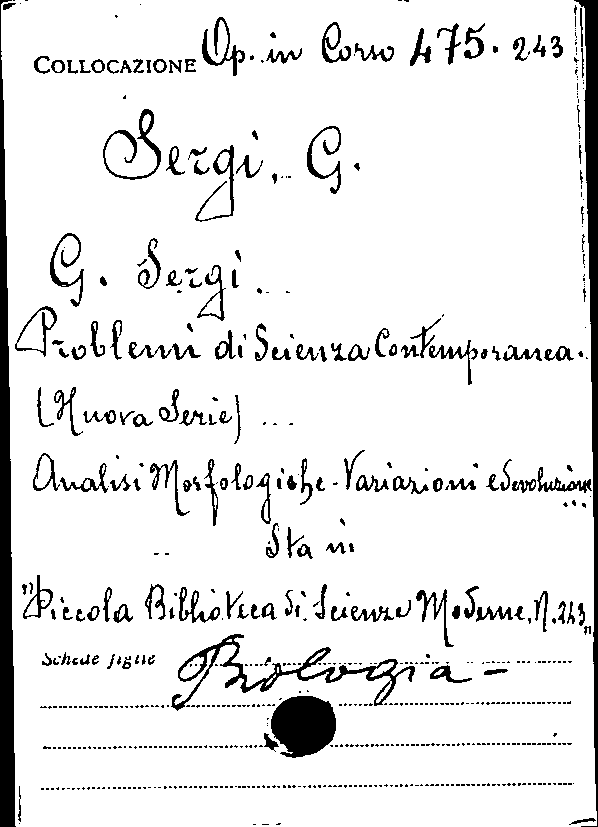 COLLOCAZIONE Op. in Corso 475. 243
Sergi, G.
G. Sergi...
Problemi di Scienza Contemporanea.
(Nuova Serie) ...
Analisi Morfologiche - Variazioni ed evoluzione
...
.. Sta in
"Piccola Biblioteca di Scienze Moderne, N. 243"
Schede figlie Biologia -